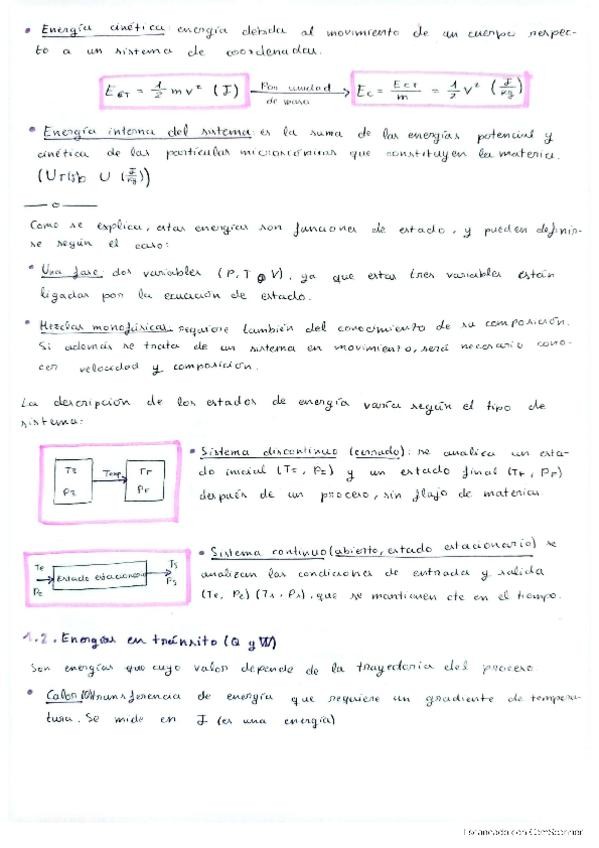 • Energía cinética: energía debida al movimiento de un cuerpo respec-
to a un sistema de coordenadas.
E_CT = 1/2 m v² (J) Por unidad de masa → E_C = E_CT/m = 1/2 v² (J/kg)
• Energía interna del sistema: es la suma de las energías potencial y
cinética de las partículas microscópicas que constituyen la materia.
—— o ——
Como se explica, estas energías son funciones de estado, y pueden definir-
se según el caso:
• Una fase: dos variables (P, T o V), ya que estas tres variables están
ligadas por la ecuación de estado.
• Mezclas monofásicas: requiere también del conocimiento de su composición.
Si además se trata de un sistema en movimiento, será necesario cono-
cer velocidad y composición.
La descripción de los estados de energía varía según el tipo de
sistema:
• Sistema discontinuo (cerrado): se analiza un esta-
do inicial (T_I, P_I) y un estado final (T_F, P_F)
después de un proceso, sin flujo de materia.
T_I
P_I
T_F
P_F
• Sistema continuo (abierto, estado estacionario) se
analizan las condiciones de entrada y salida
(Te, Pe) (Ts, Ps), que se mantienen cte en el tiempo.
Te
Pe
Estado estacionario
Ts
Ps
1.2. Energías en tránsito (Q y W)
Son energías que cuyo valor depende de la trayectoria del proceso.
• Calor (Q): transferencia de energía que requiere un gradiente de tempera-
tura. Se mide en J (es una energía)
Escaneado con CamScanner